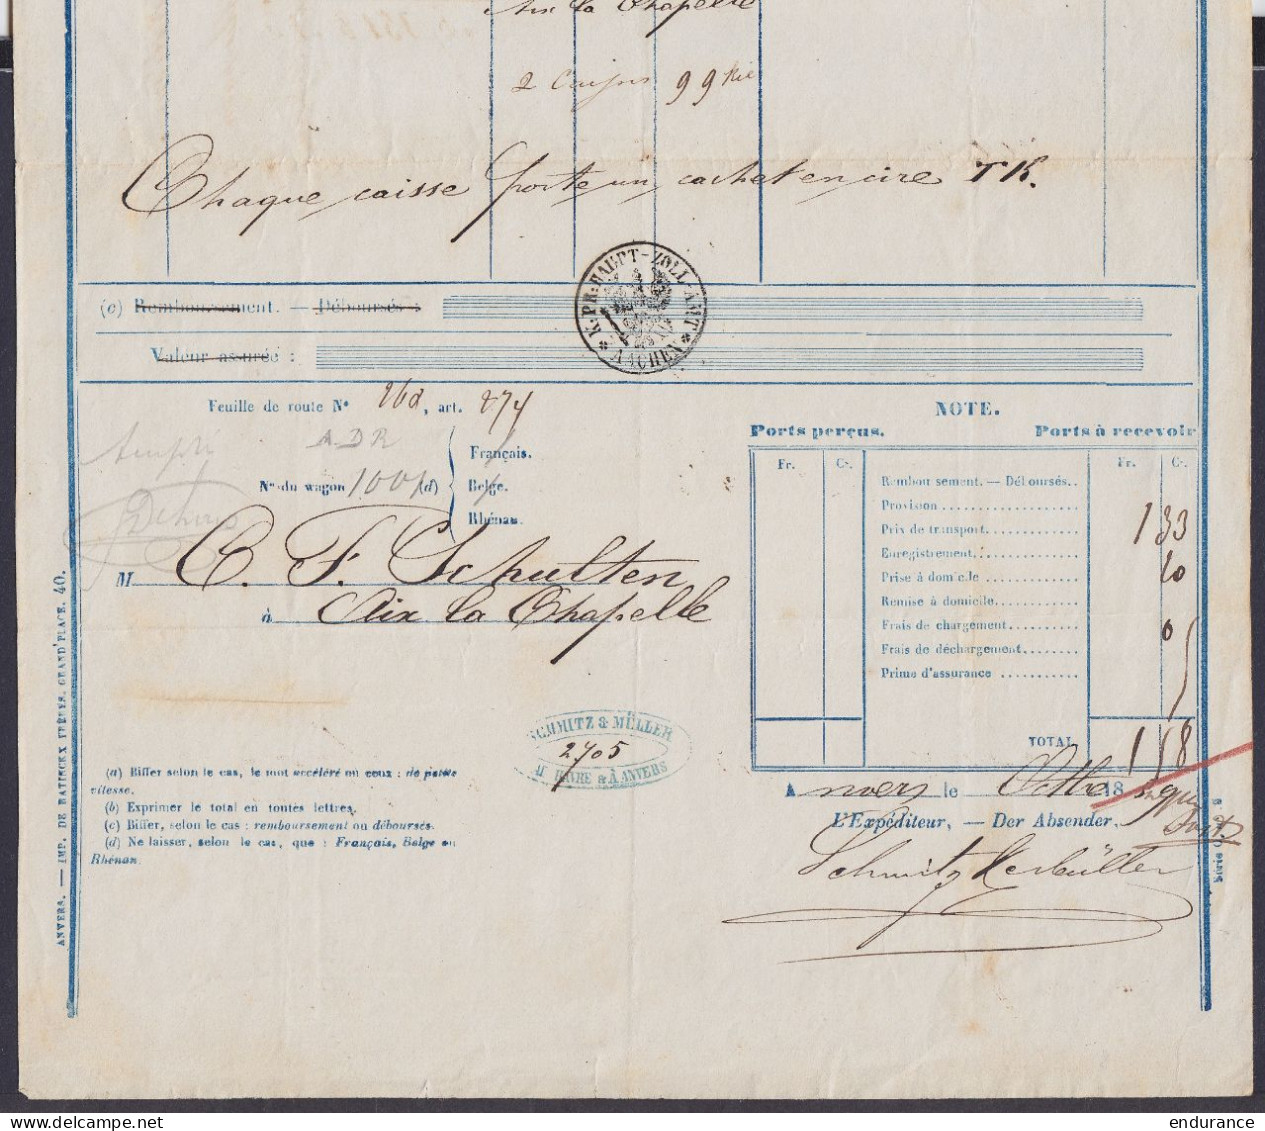 Aix la Chapelle
2 99 Kil
Chaque caisse porte un cachet en cire TK.
K. PR: HAUPT-ZOLL-AMT
* AACHEN *
(c) Remboursement. — Déboursés :
Valeur assurée :
Feuille de route N° 262, art. 274
ADR
Français.
N° du wagon 1001 (d)
Belge.
Rhénan.
M C. F. Schulten
à Aix la Chapelle
SCHMITZ & MÜLLER
2705
AU HAVRE & À ANVERS
(a) Biffer selon le cas, le mot accéléré ou ceux : de petite
vitesse.
(b) Exprimer le total en toutes lettres.
(c) Biffer, selon le cas : remboursement ou déboursés.
(d) Ne laisser, selon le cas, que : Français, Belge ou
Rhénan.
NOTE.
Ports perçus. Ports à recevoir
Fr. C. Fr. C.
Remboursement. — Déboursés..
Provision
Prix de transport 1 33
Enregistrement
Prise à domicile 20
Remise à domicile
Frais de chargement 0
Frais de déchargement
Prime d'assurance
TOTAL 1 58
Anvers le Octbre 18
L'Expéditeur, — Der Absender,
Schmitz & Müller
ANVERS. — IMP. DE RATINCKX FRÈRES, GRAND'PLACE, 40.
Série
endurance